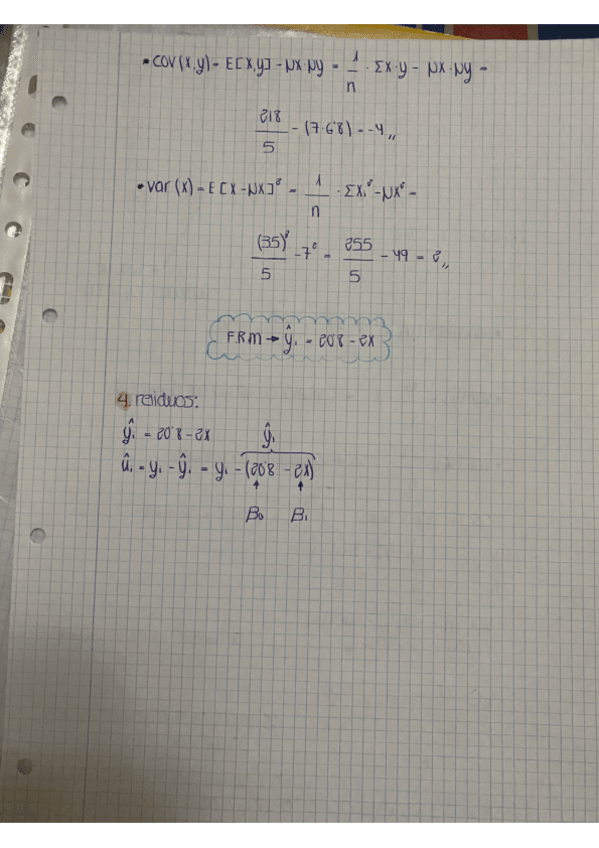 • COV(X,Y) = E[X,Y] - μX·μY = 1/n · ΣX·Y - μX·μY =
218/5 - (7·6'8) = -4,,
• var(X) = E[X-μX]² = 1/n · ΣXi² - μX² =
(35)²/5 - 7² = 255/5 - 49 = 2,,
F.R.M → ŷi = 20'8 - 2X
4. reiduos:
ŷi = 20'8 - 2X ŷi
ûi = yi - ŷi = yi - (20'8 - 2X)
↑ ↑
B0 B1